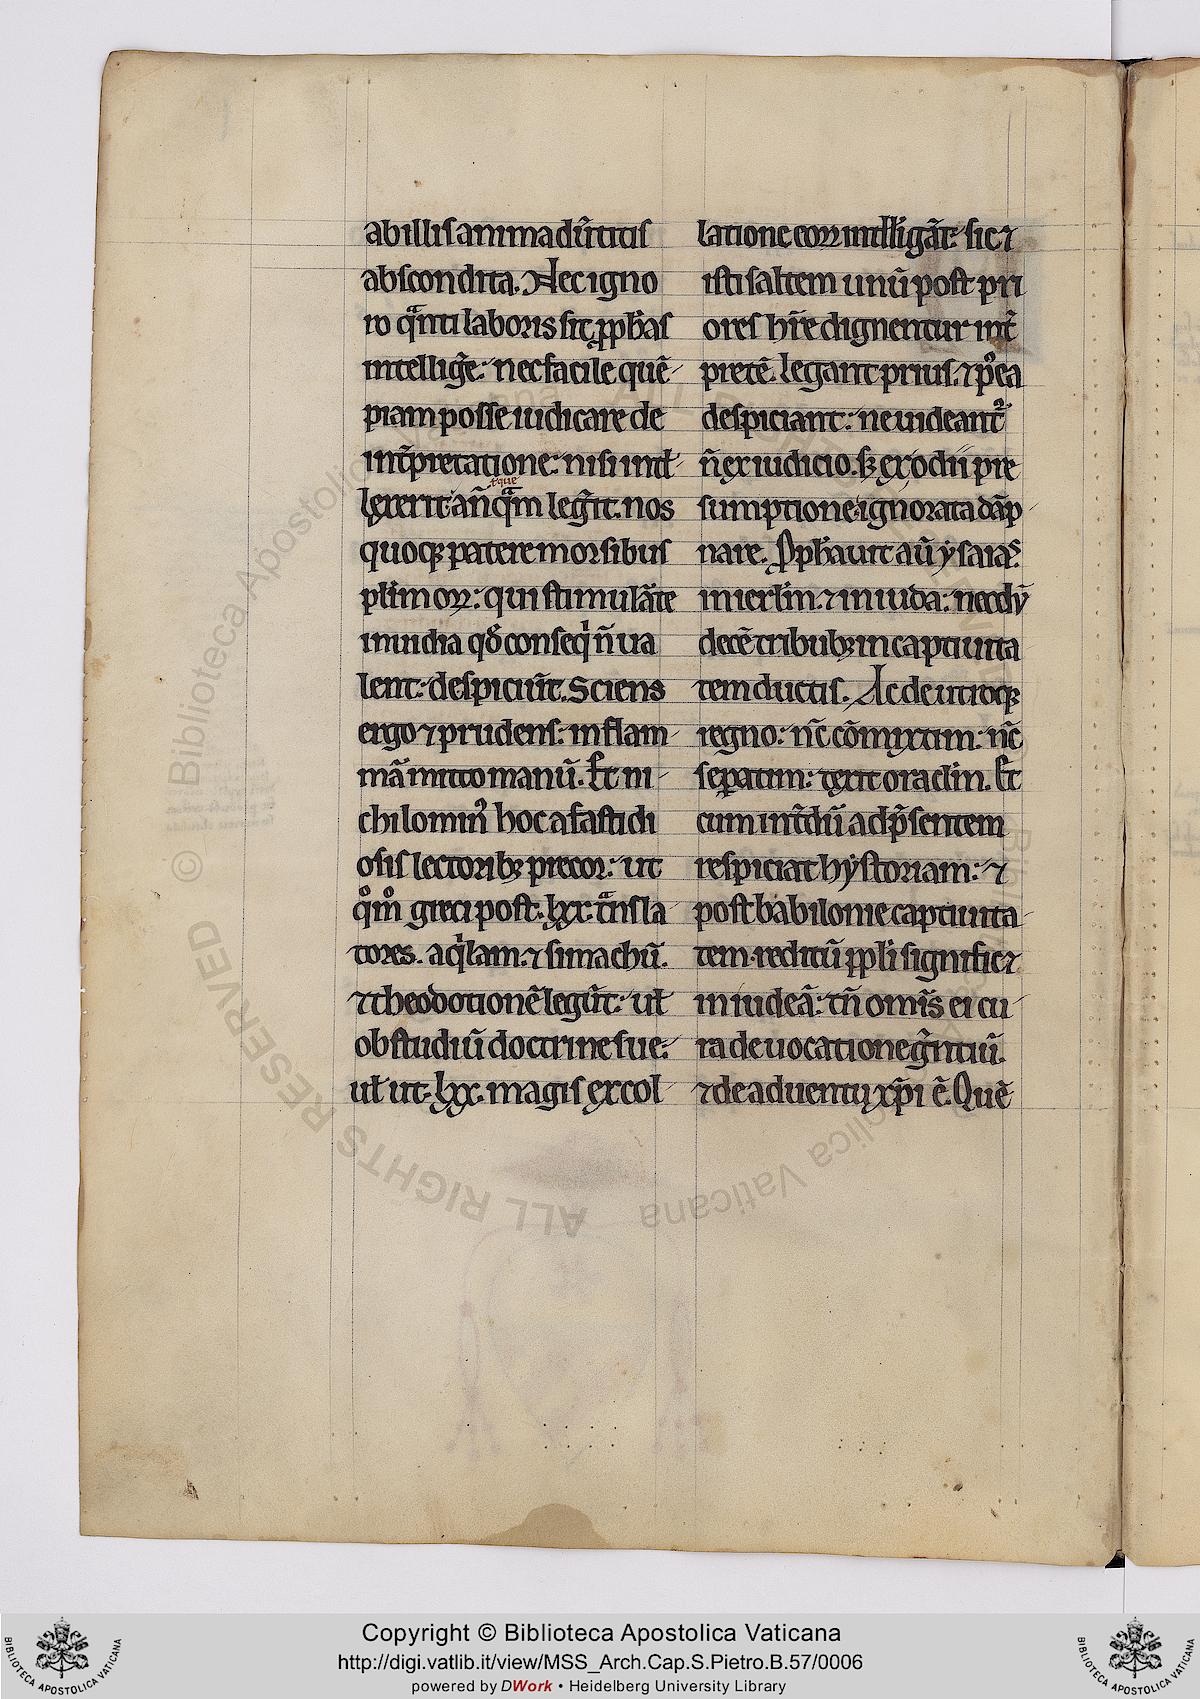 ab illis animadũtitis
abscondita. Nec igno
ro q̃nti laboris sit ꝓph̃as
intellig̃e: nec facile quẽ
piam posse iudicare de
int̃pretatione: nisi intll̃
lexerit añ q̃m leg̃it. nos
tque
quoqꝫ patere morsibus
pl̃imoꝝ: qui stimulãte
inuidia qđ conseqi ñ ua
lent: despiciũt. Sciens
ergo ⁊ prudens: in flam
mã mitto manũ. Et ni
chilomin᷒ hoc a fastidi
osis lectoribꝫ precor: ut
qᵒmᵒ greci post. lxx. t̃nsla
tores. aqⁱlam. ⁊ simachũ.
⁊ theodotionẽ legũt: ul̃
ob studiũ doctrine sue:
ul̃ ut. lxx. magis ex col
latione eoꝝ intllĩgãt: sic ⁊
isti saltem unũ post pri
ores hr̃e dignentur int̃
pretẽ. legant prius. ⁊ pᵒea
despiciant: ne uideant᷑
ñ ex iudicio. sꝫ ex odii pre
sumptione ignorata dãp
nare. Ꝓph̃auit aũ ysaias
in ierl̃m. ⁊ in iuda: necdũ
decẽ tribubꝫ in captiuita
tem ductis. Ac de utroqꝫ
regno: nc̃ cõmixtim: nc̃
seꝑatim: texit oraclm̃. Et
cum int̃dũ ad p̃sentem
respiciat hystoriam: ⁊
post babilonie captiuita
tem reditũ ppl̃i signific⁊
in iudeã: tñ omĩs ei cu
ra de uocatione g̃ntiũ.
⁊ de aduentu xp̃i ẽ. Quẽ
© Biblioteca Apostolica Vaticana
ALL RIGHTS RESERVED
Copyright © Biblioteca Apostolica Vaticana
http://digi.vatlib.it/view/MSS_Arch.Cap.S.Pietro.B.57/0006
powered by DWork • Heidelberg University Library
BIBLIOTECA APOSTOLICA VATICANA
BIBLIOTECA APOSTOLICA VATICANA